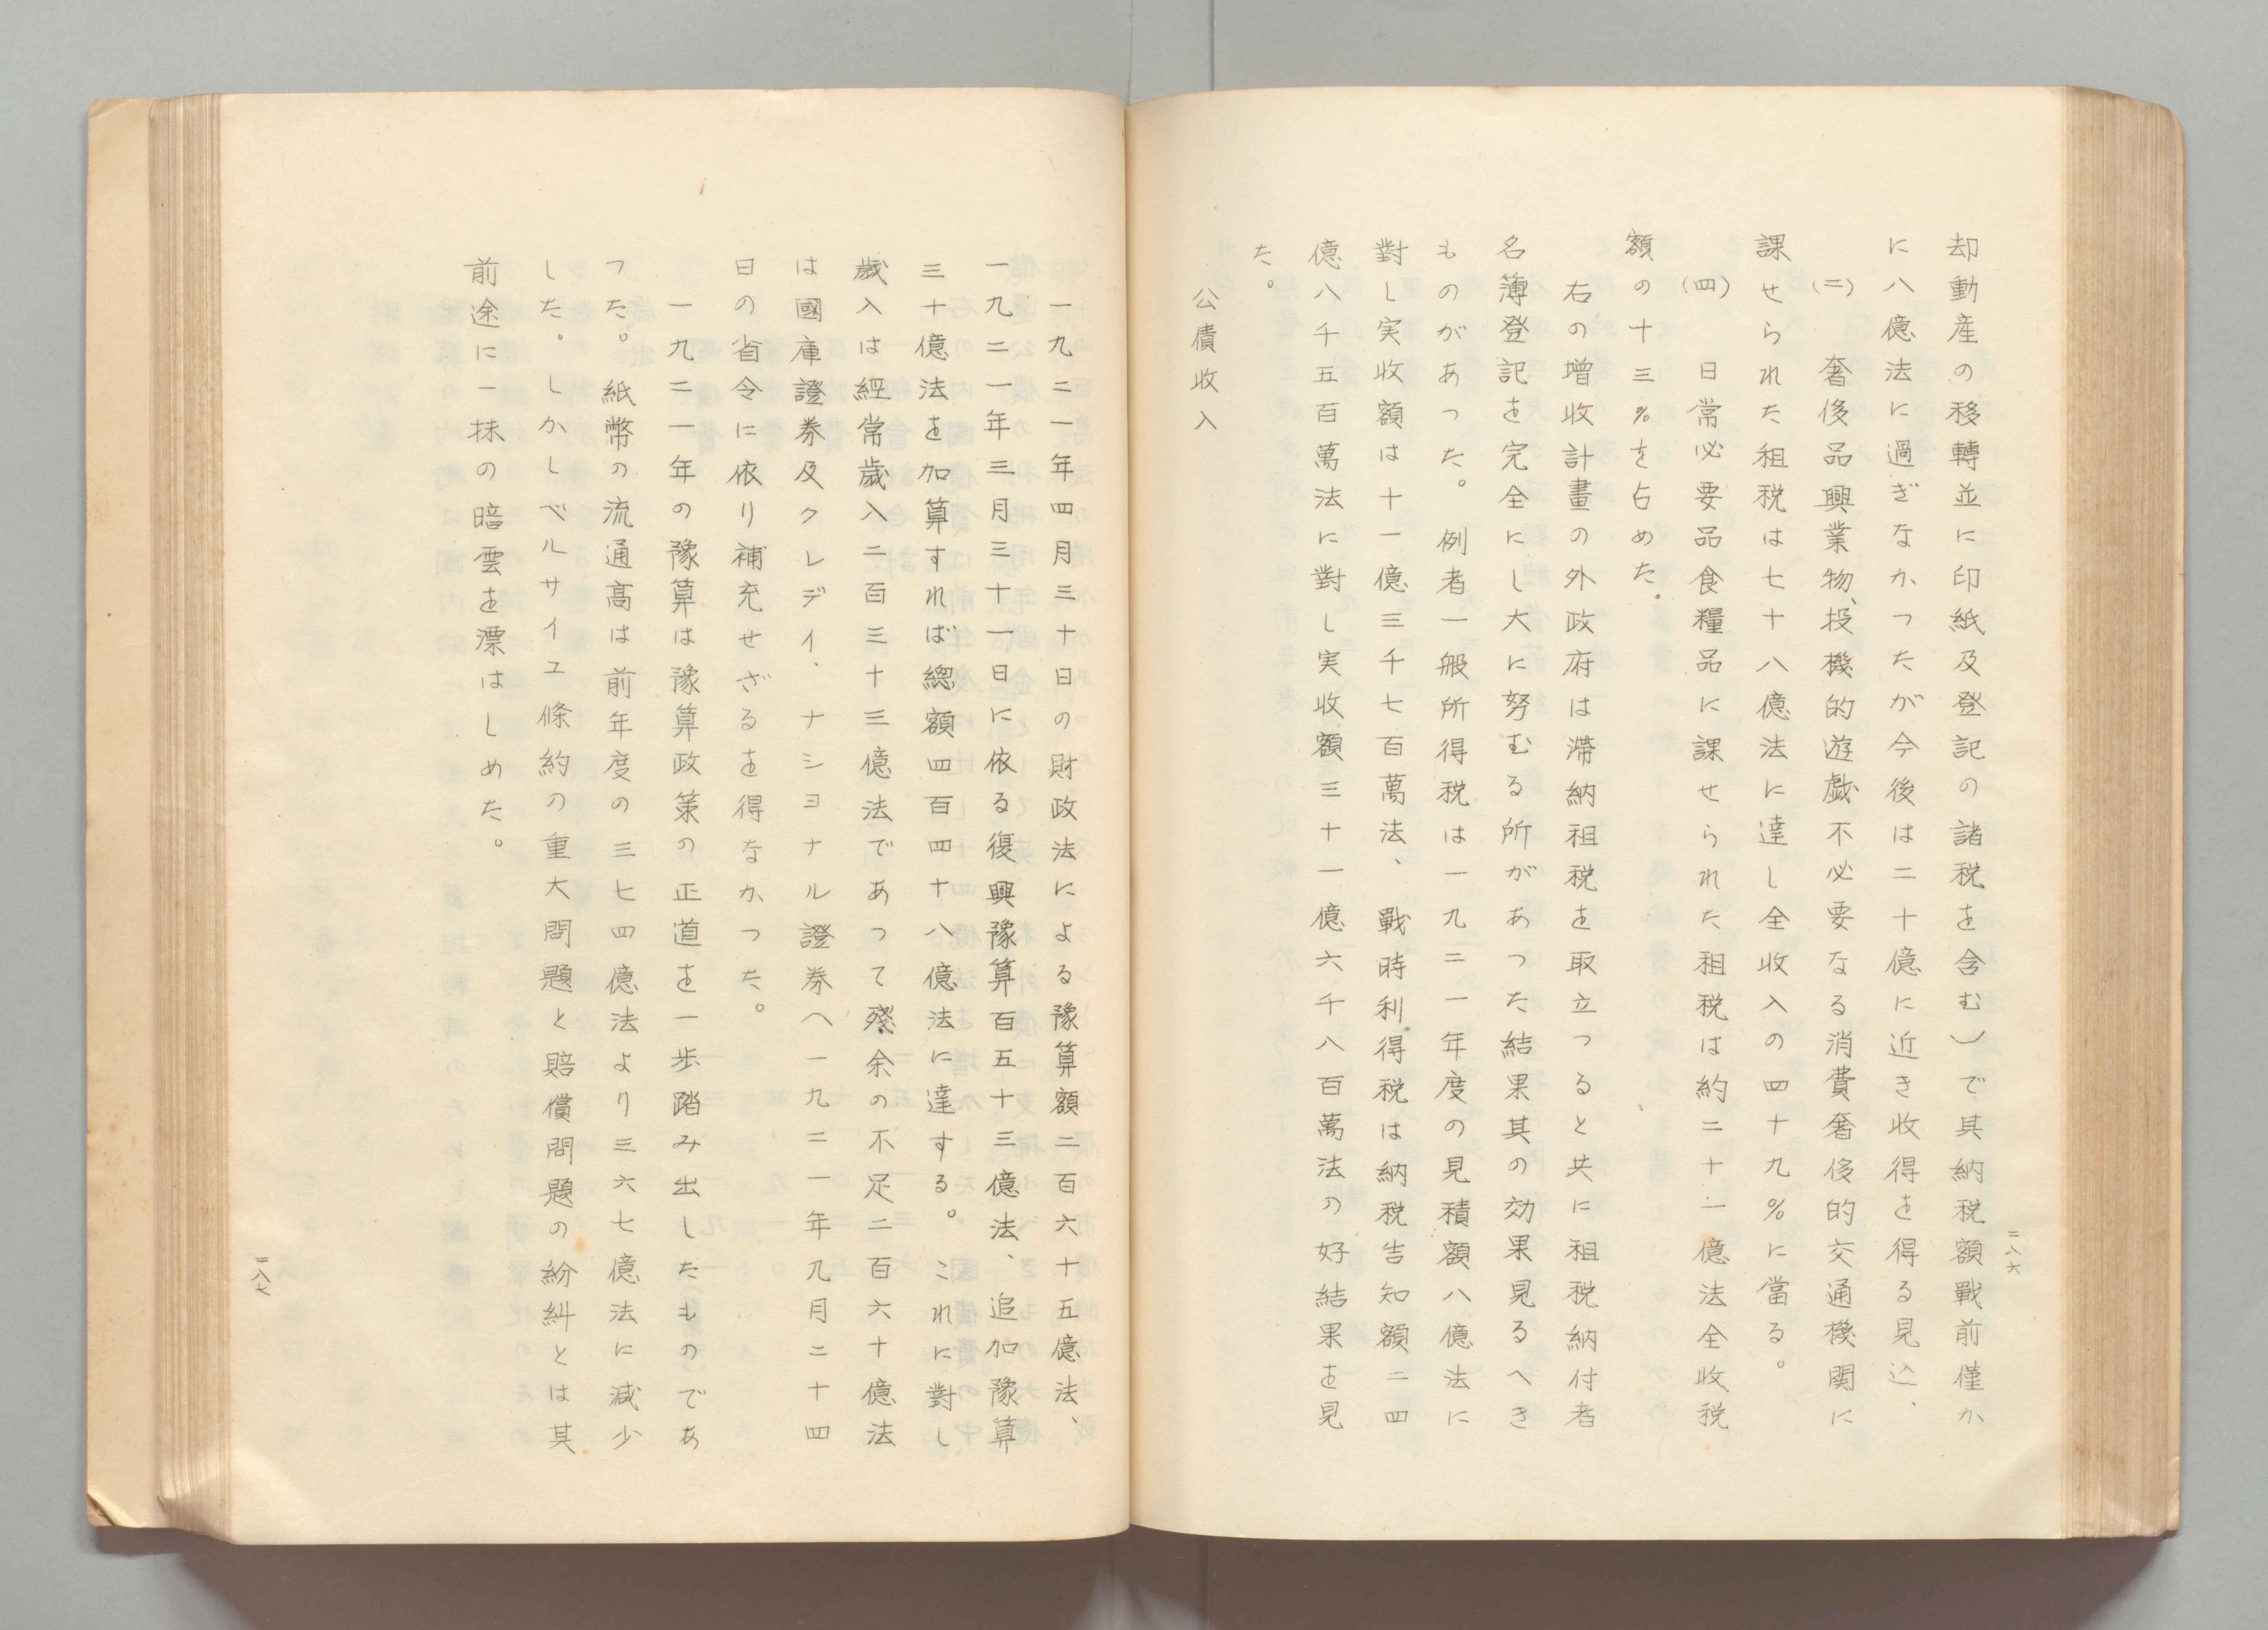 却動産の移轉並に印紙及登記の諸税を含む)で其納税額戰前僅か
に八億法に過ぎなかつたが今後は二十億に近き収得を得る見込、
(二)　奢侈品興業物、投機的遊戯不必要なる消費奢侈的交通機関に
課せられた租税は七十八億法に達し全收入の四十九%に當る。
(四)　日常必要品食糧品に課せられた租税は約二十一億法全收税
額の十三%を占めた。
右の増收計畫の外政府は滞納租税を取立つると共に租税納付者
名簿登記を完全にし大に努むる所があつた結果其の効果見るへき
ものがあつた。例者一般所得税は一九二一年度の見積額八億法に
對し実收額は十一億三千七百萬法、戰時利得税は納税告知額二四
億八千五百萬法に對し実收額三十一億六千八百萬法の好結果を見
た。
公債收入
二八六
一九二一年四月三十日の財政法による豫算額二百六十五億法、
一九二一年三月三十一日に依る復興豫算百五十三億法、追加豫算
三十億法を加算すれば總額四百四十八億法に達する。これに對し
歳入は經常歳入二百三十三億法であつて殘余の不足二百六十億法
は國庫證券及クレデイ、ナシヨナル證券へ一九二一年九月二十四
日の省令に依り補充せざるを得なかつた。
一九二一年の豫算は豫算政策の正道を一歩踏み出したものであ
つた。紙幣の流通高は前年度の三七四億法より三六七億法に減少
した。しかしベルサイユ條約の重大問題と賠償問題の紛糾とは其
前途に一抹の暗雲を漂はしめた。
二八七